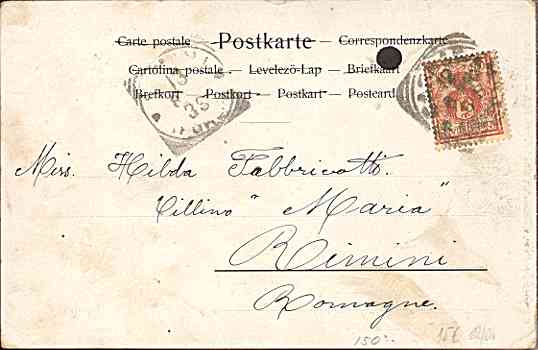 Carte postale — Postkarte — Correspondenzkarte
Cartolina postale — Levelező-Lap — Briefkaart
Brefkort — Postkort — Postkart — Postcard
Miss. Hilda Fabbricotti
Villino "Maria"
Rimini
Romagne.
150.-